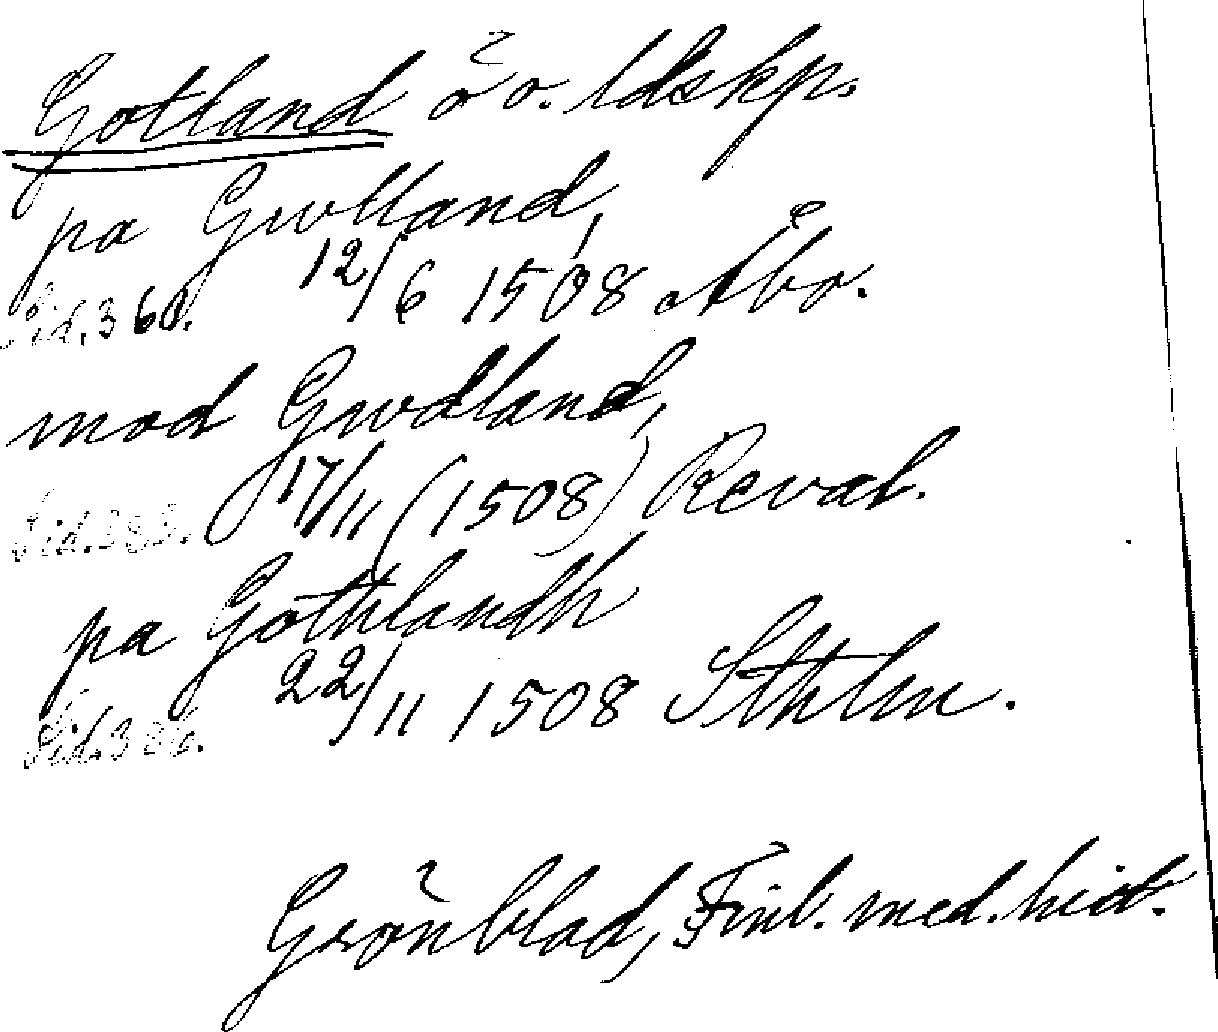 Gotland ö o. ldskp.
pa Gwlland,
12/6 1508 Åbo.
Sid. 360.
mod Gwdland,
17/11 (1508) Reval.
Sid. 383.
pa Gothlandh
22/11 1508 Sthlm.
Sid. 386.
Grönblad, Finl. med. hist.